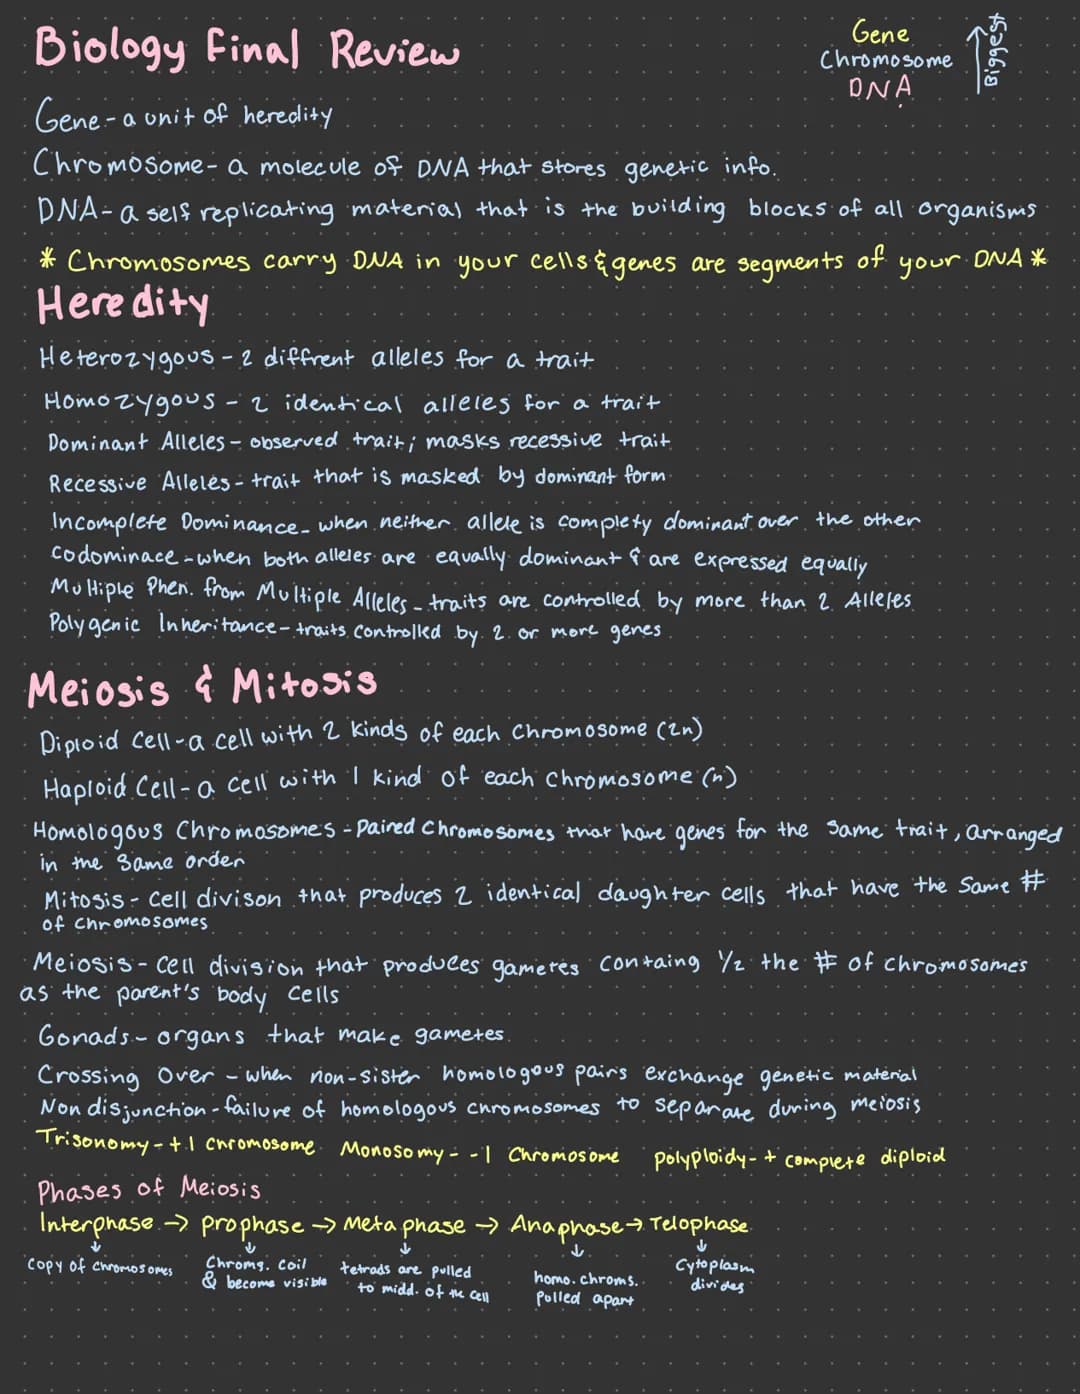 Biology Final Review
Gene
Chromosome
DNA
Biggest
Gene - a unit of heredity
Chromosome - a molecule of DNA that stores genetic info.
DNA - a self replicating material that is the building blocks of all organisms
* Chromosomes carry DNA in your cells & genes are segments of your DNA *
Heredity
Heterozygous - 2 diffrent alleles for a trait
Homozygous - 2 identical alleles for a trait
Dominant Alleles - observed trait; masks recessive trait
Recessive Alleles - trait that is masked by dominant form
Incomplete Dominance - when neither allele is complety dominant over the other
Codominace - when both alleles are equally dominant & are expressed equally
Multiple Phen. from Multiple Alleles - traits are controlled by more than 2 Alleles
Polygenic Inheritance - traits controlled by 2 or more genes
Meiosis & Mitosis
Diploid Cell - a cell with 2 kinds of each chromosome (2n)
Haploid Cell - a cell with 1 kind of each chromosome (n)
Homologous Chromosomes - Paired Chromosomes that have genes for the same trait, arranged
in the same order
Mitosis - cell divison that produces 2 identical daughter cells that have the same #
of chromosomes
Meiosis - cell division that produces gametes containg 1/2 the # of chromosomes
as the parent's body cells
Gonads - organs that make gametes
Crossing Over - when non-sister homologous pairs exchange genetic material
Nondisjunction - failure of homologous chromosomes to separate during meiosis
Trisonomy - +1 chromosome Monosomy - -1 Chromosome polyploidy - + complete diploid
Phases of Meiosis
Interphase → prophase → Metaphase → Anaphase → Telophase
↓ ↓ ↓ ↓ ↓
Copy of chromosomes Chroms. coil tetrads are pulled homo. chroms. Cytoplasm
& become visible to midd. of the cell pulled apart divides